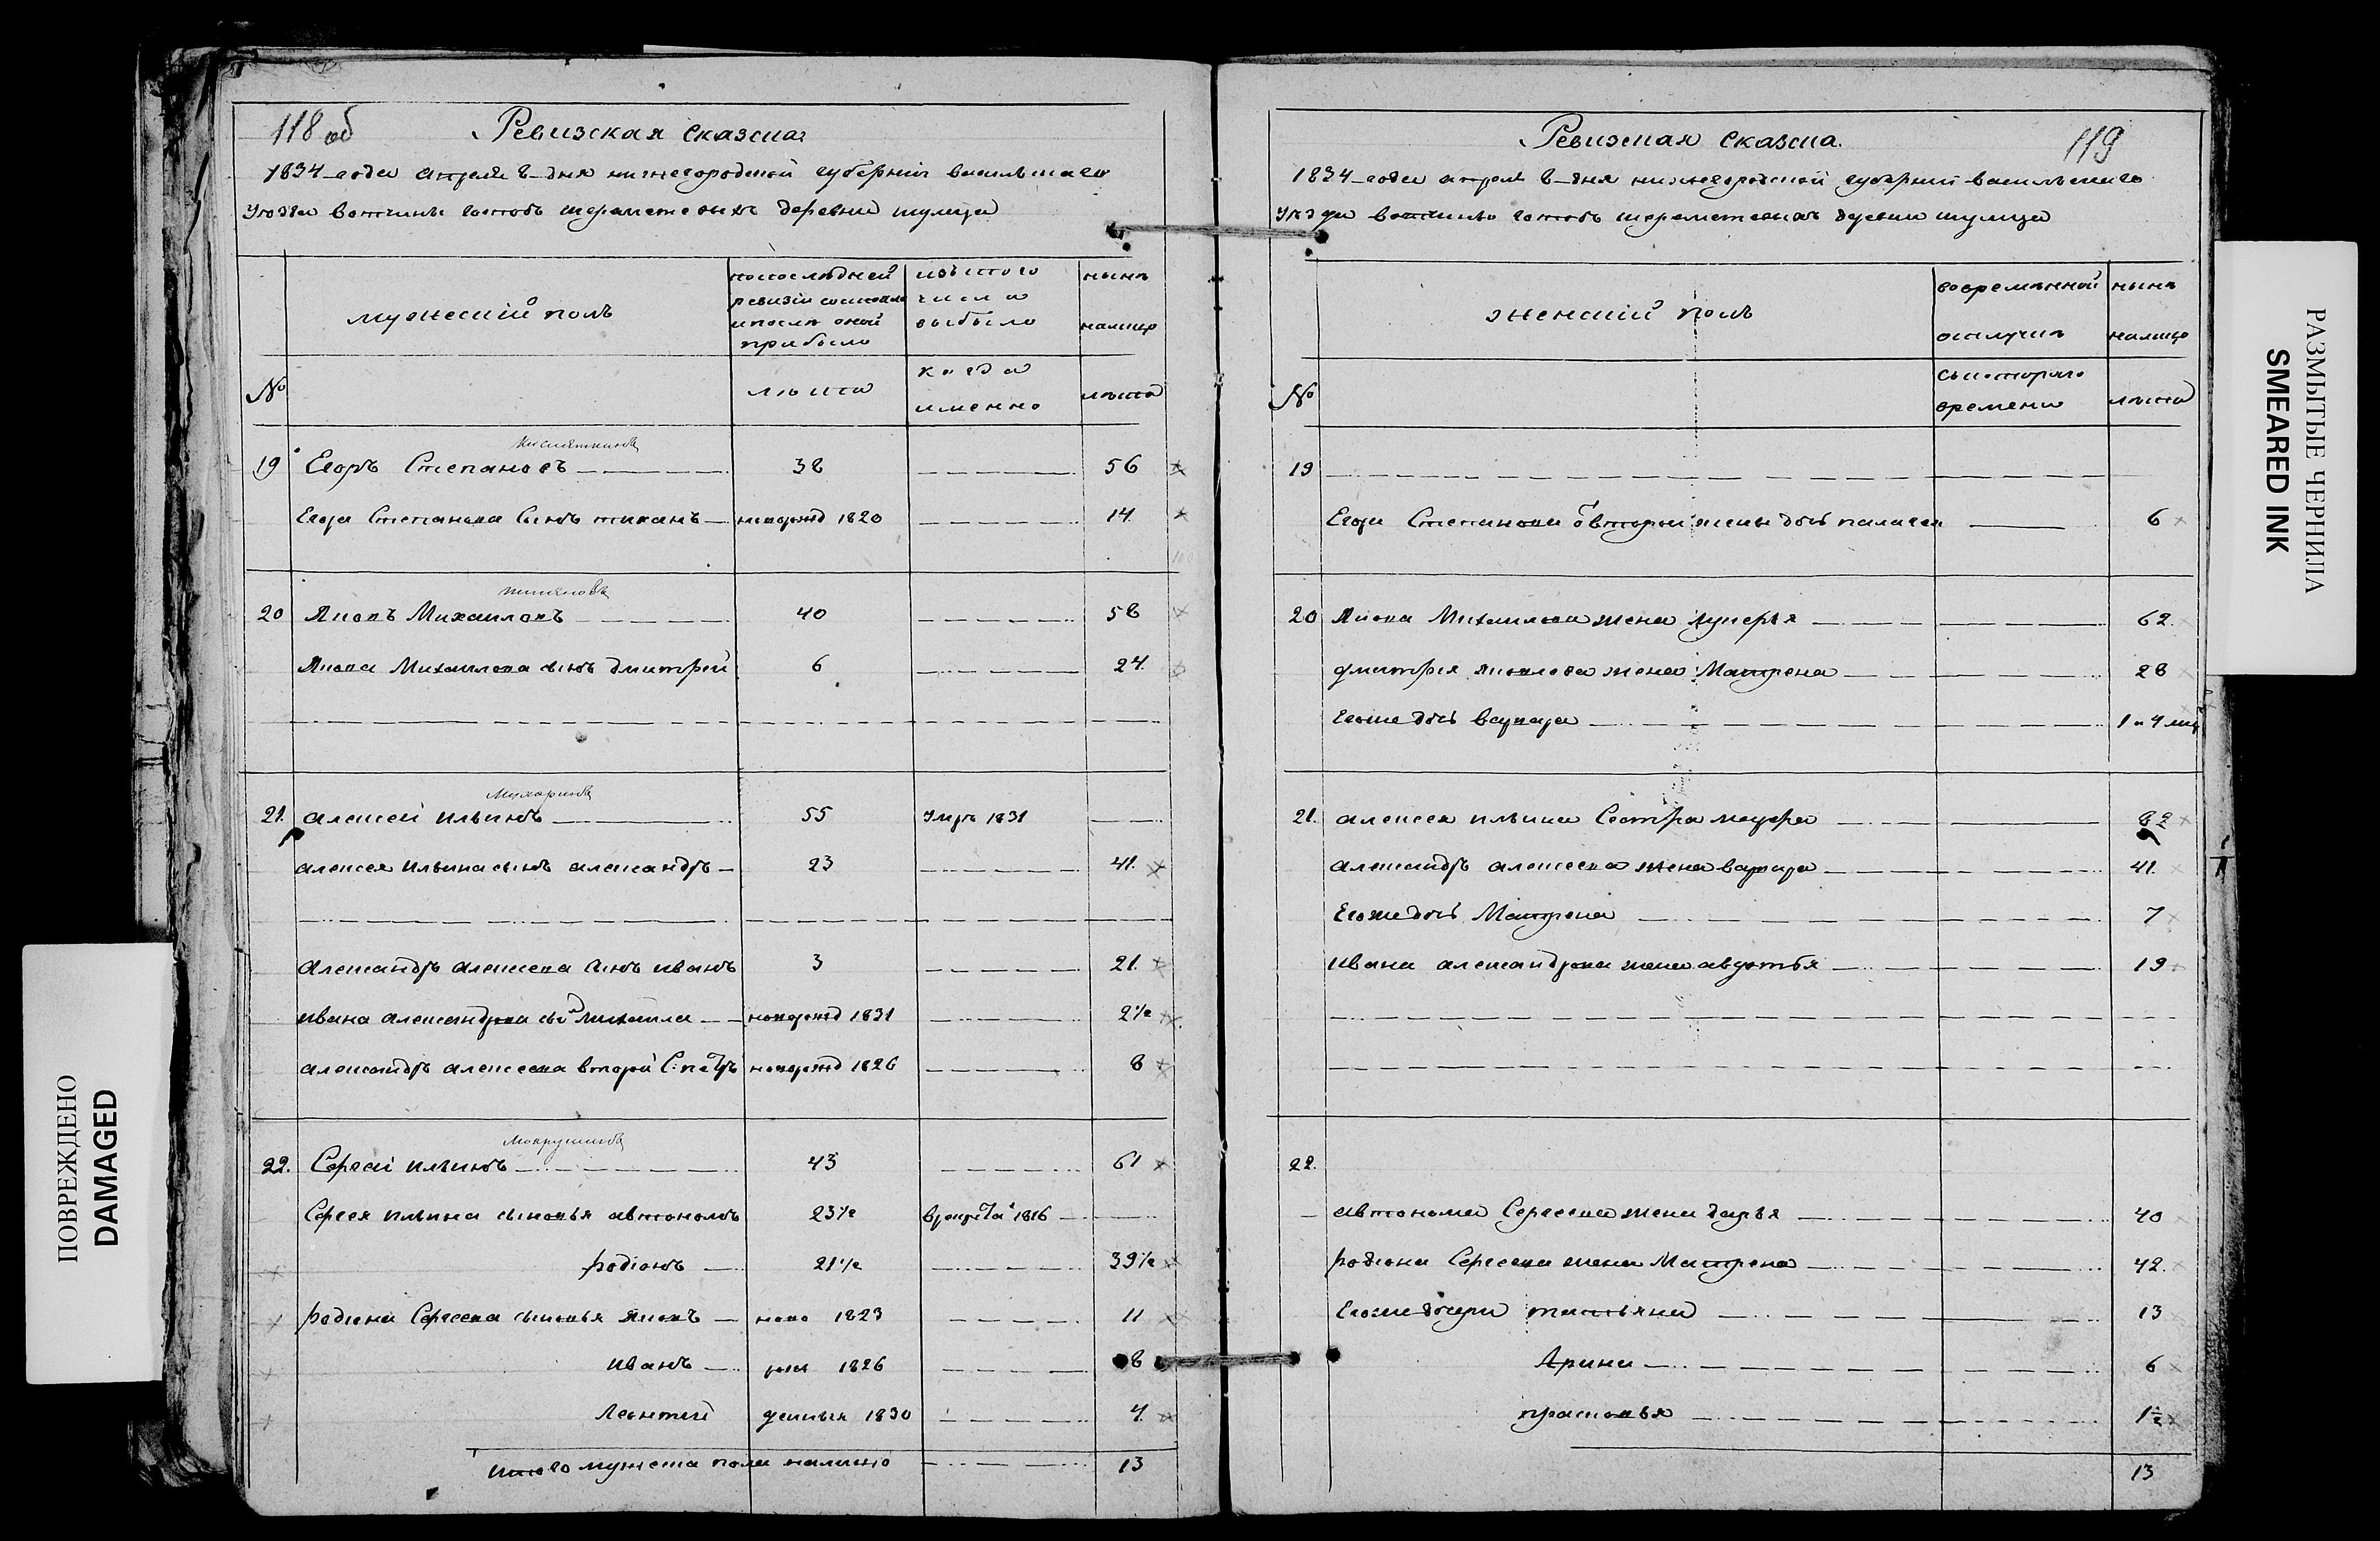 118 об
Ревизская сказка
1834 года апреля 8 дня нижегородской губернии васильскаго
уезда вотчины гостодъ шереметевыхъ деревни шумеца
мужескій полъ
попоследней
ревизіи состояло
ипосле оной
прибыло
изътого
числа
выбыло
ныне
налицо
№
лета
когда
именно
лета
19 Егоръ Степановъ 38 56
Егора Степанова Сынъ тиханъ новорожд 1820 14
20 Яковъ Михаиловъ 40 58
Якова Михаилова сынъ дмитрей 6 24
Мухоринъ
21. алексей ильинъ 55 умръ 1831
алексея ильина сынъ александръ 23 41.
александръ алексеева сынъ иванъ 3 21.
ивана александрова сы михаила новорожд 1831 2½
александръ алексеева второй С: петръ новорожд 1826 8
Мокрушинъ
22. Сергей ильинъ 43 61
Сергея ильина сыновья автономъ 23½ врекрута 1816
родіонъ 21½ 39½
родіона Сергеева сыновья Яковъ ново 1823 11
иванъ рож 1826 8
Леонтей денныя 1830 4
итого мужеска пола налицо 13
Ревизская сказка.
119
1834 года апреля 8 дня нижегородской губернии васильскаго
уезда вотчины гостодъ шереметевыхъ деревни шумеца
женскій полъ
вовременной
отлучке
ныне
налицо
№
скотораго
времени
лета
19
Егора Степанова отвторой жены дочь палагея 6
20 Якова Михаилова жена лукерья 62
дмитрея яковлева жена Матрена 28
Егоже дочь варвара 1 и 4 мес
21. алексея ильина Сестра мавра 82
александръ алексеева жена варвара 41.
Егоже дочь Матрена 7
ивана александрова жена авдотья 19
22.
автонома Сергеева жена дарья 40
родиона Сергеева жена Матрена 42.
Егоже дочери татьяна 13
Арина 6
прасковья 1½
13
ПОВРЕЖДЕНО
DAMAGED
РАЗМЫТЫЕ ЧЕРНИЛА
SMEARED INK